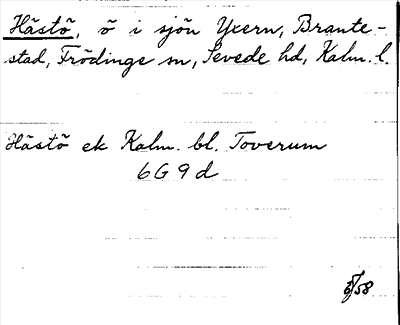 Hästö, ö i sjön Yxern, Brante-
stad, Frödinge sn, Sevede hd, Kalm. l.
Hästö ek Kalm. bl. Toverum
6G9d
/58